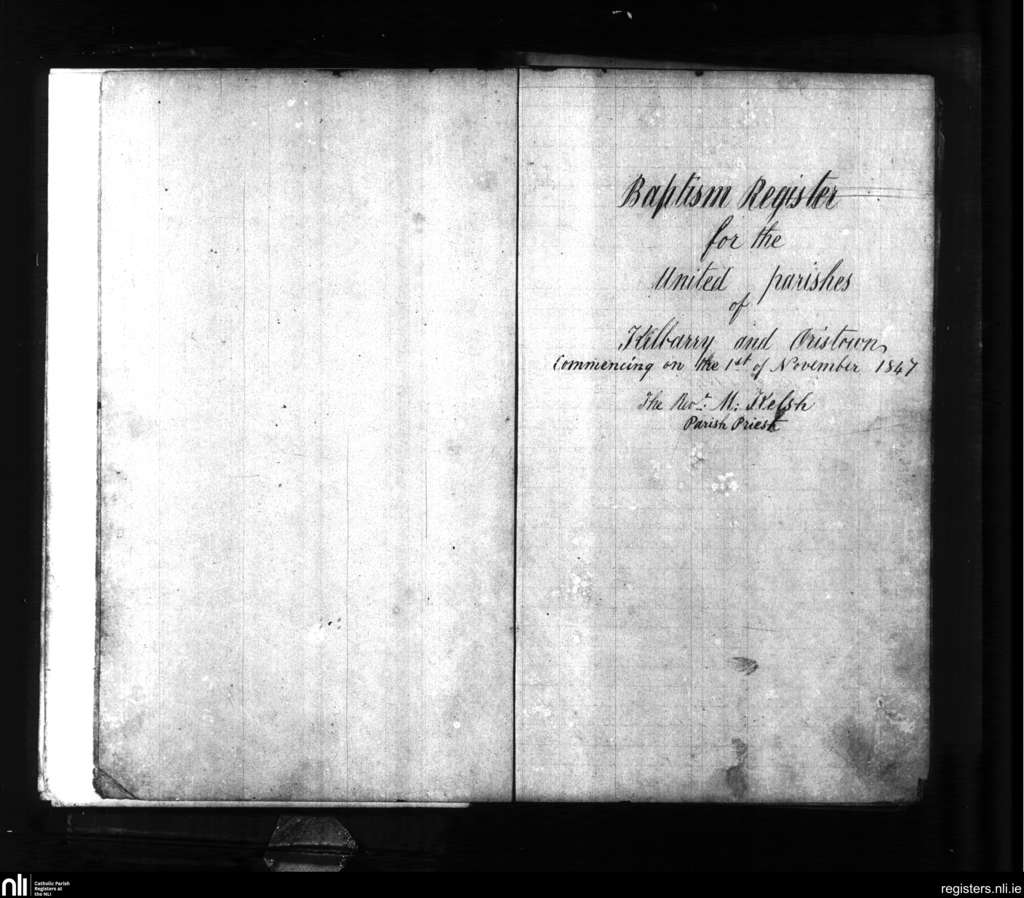 Baptism Register
for the
United parishes
of
Kilbarry and Oristown
Commencing on the 1st of November 1847
The Revr. M: Kelsh
Parish Priest
nli
Catholic Parish
Registers at
the NLI
registers.nli.ie